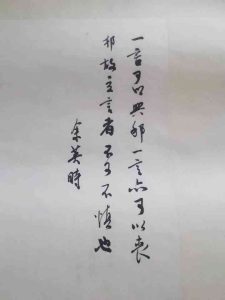 一言可以興邦一言亦可以喪
邦故立言者不可不慎也
余英時